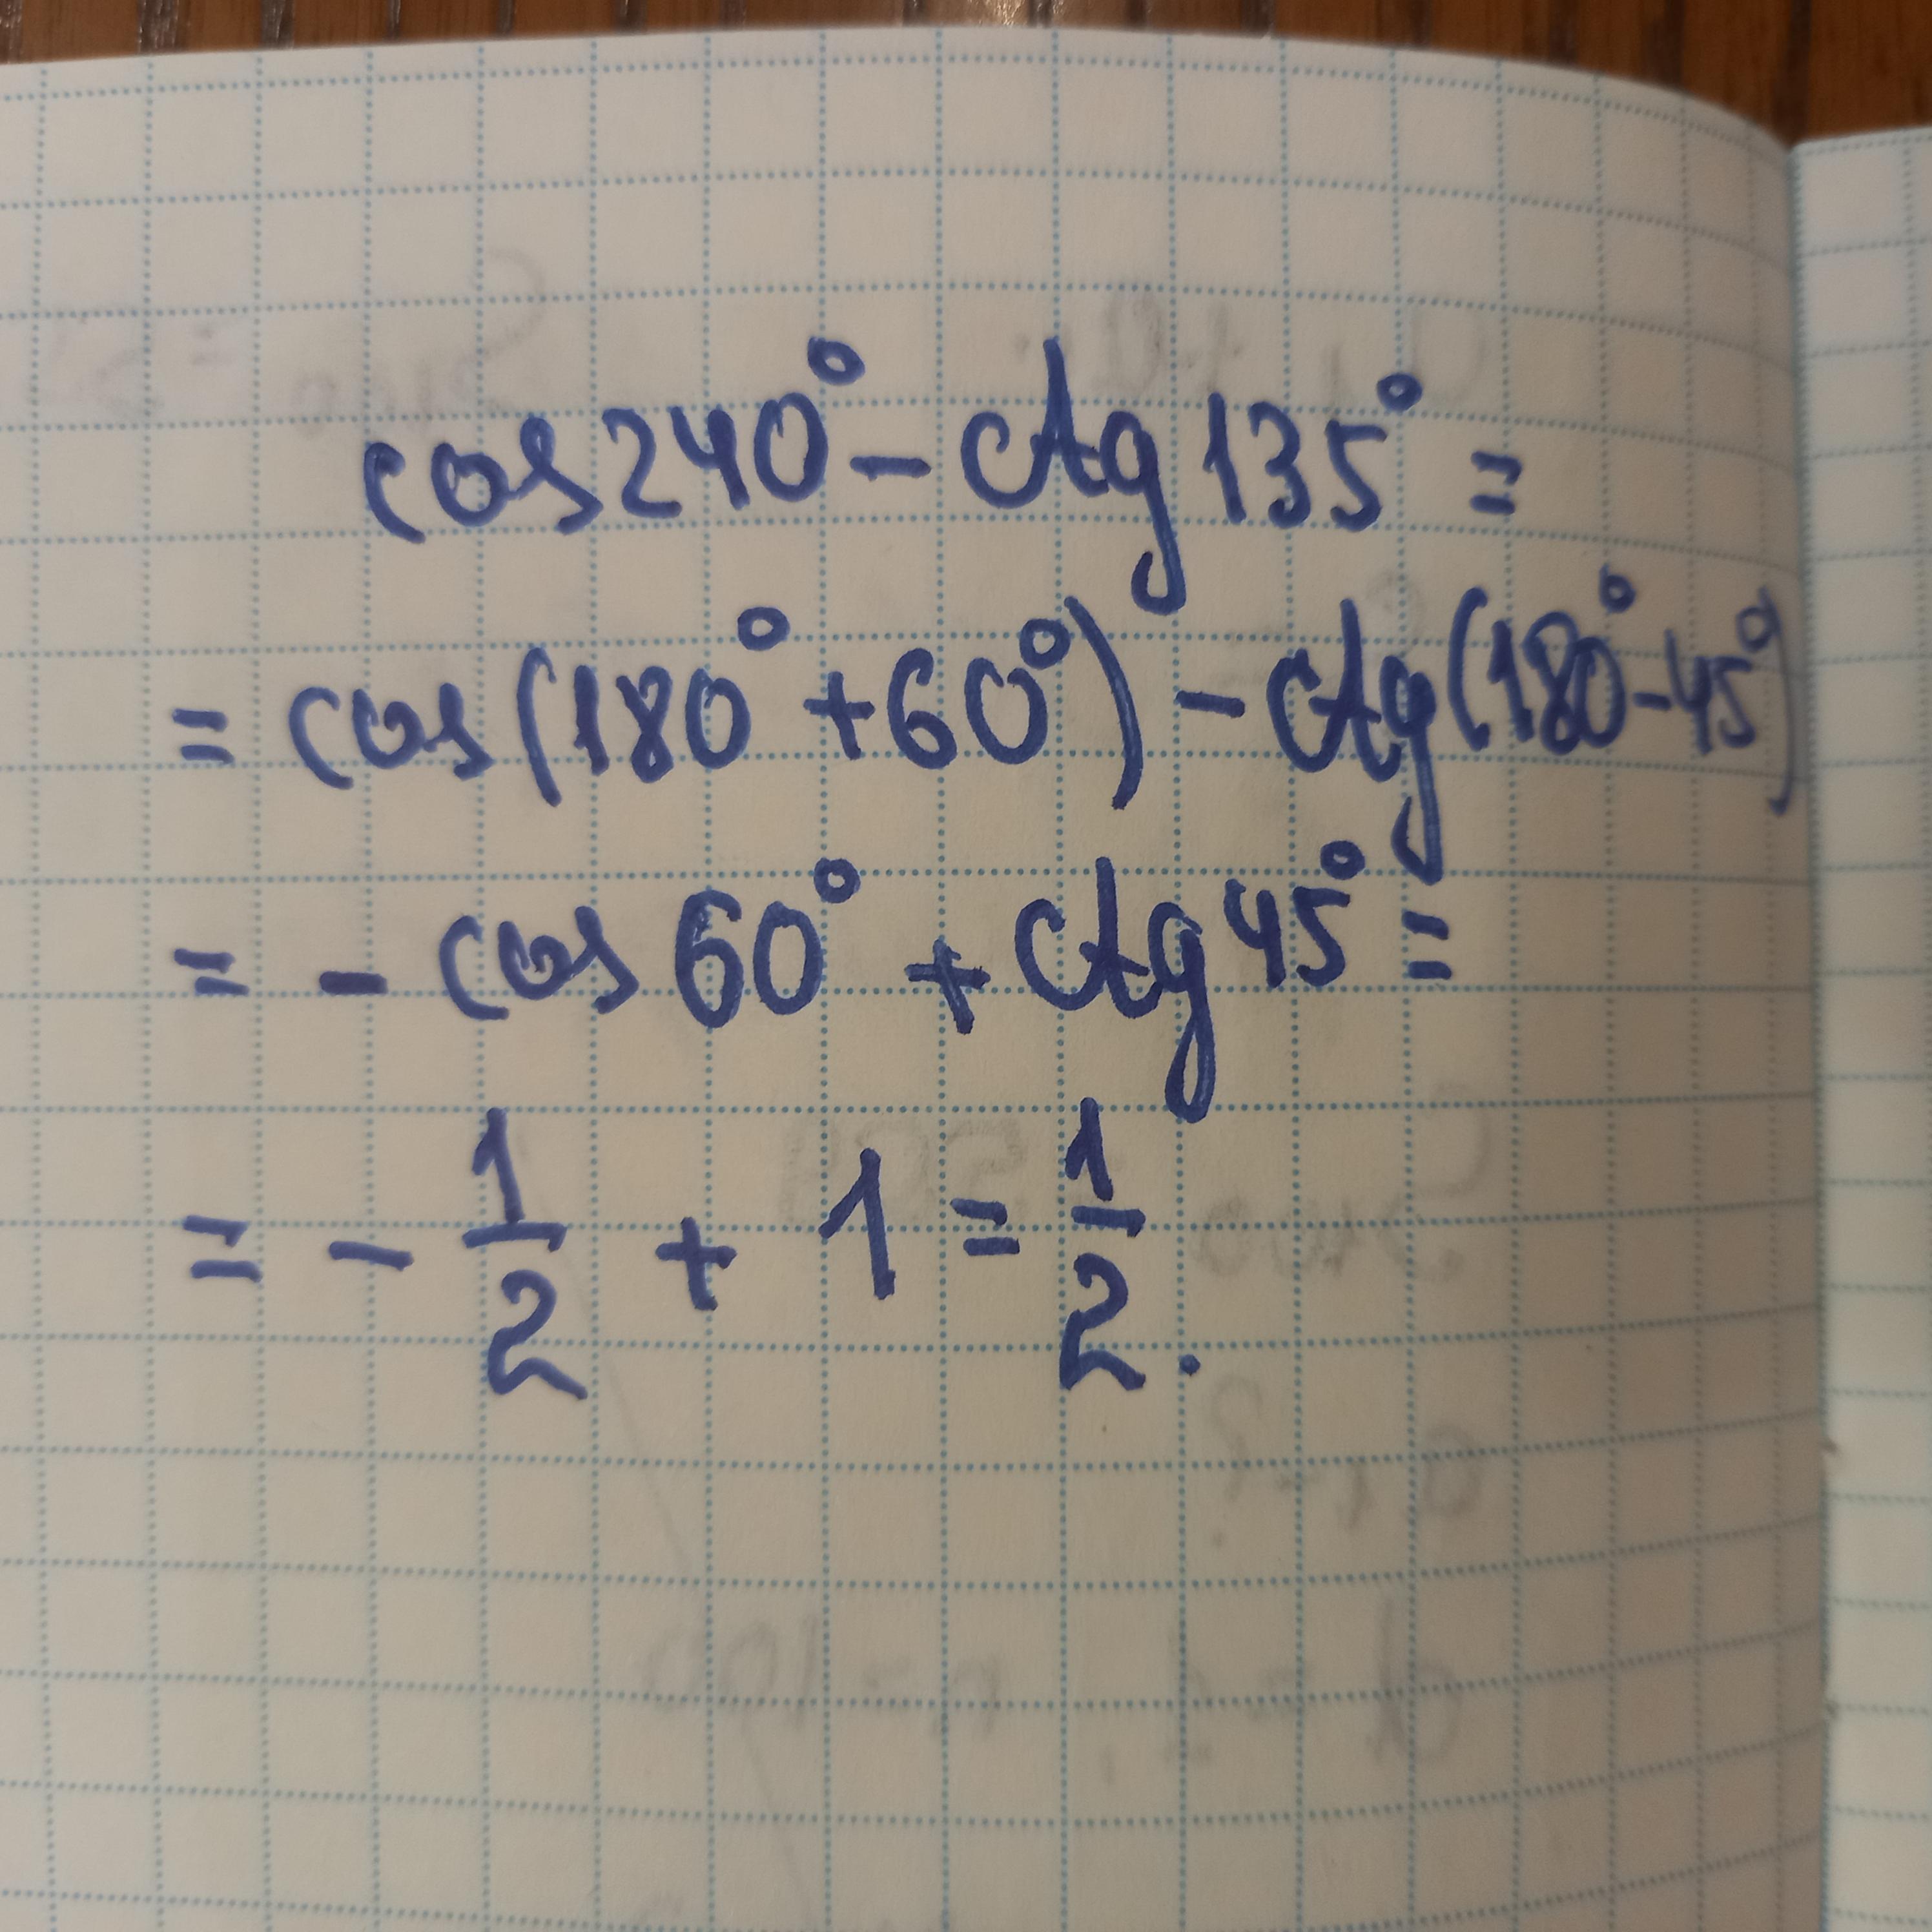 cos 240° - ctg 135° =
= cos(180° + 60°) - ctg(180° - 45°)
= - cos 60° + ctg 45° =
= - 1/2 + 1 = 1/2.